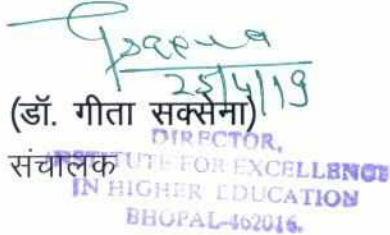 25/4/19
(डॉ. गीता सक्सेना)
DIRECTOR,
संचालक
INSTITUTE FOR EXCELLENCE
IN HIGHER EDUCATION
BHOPAL-462016.